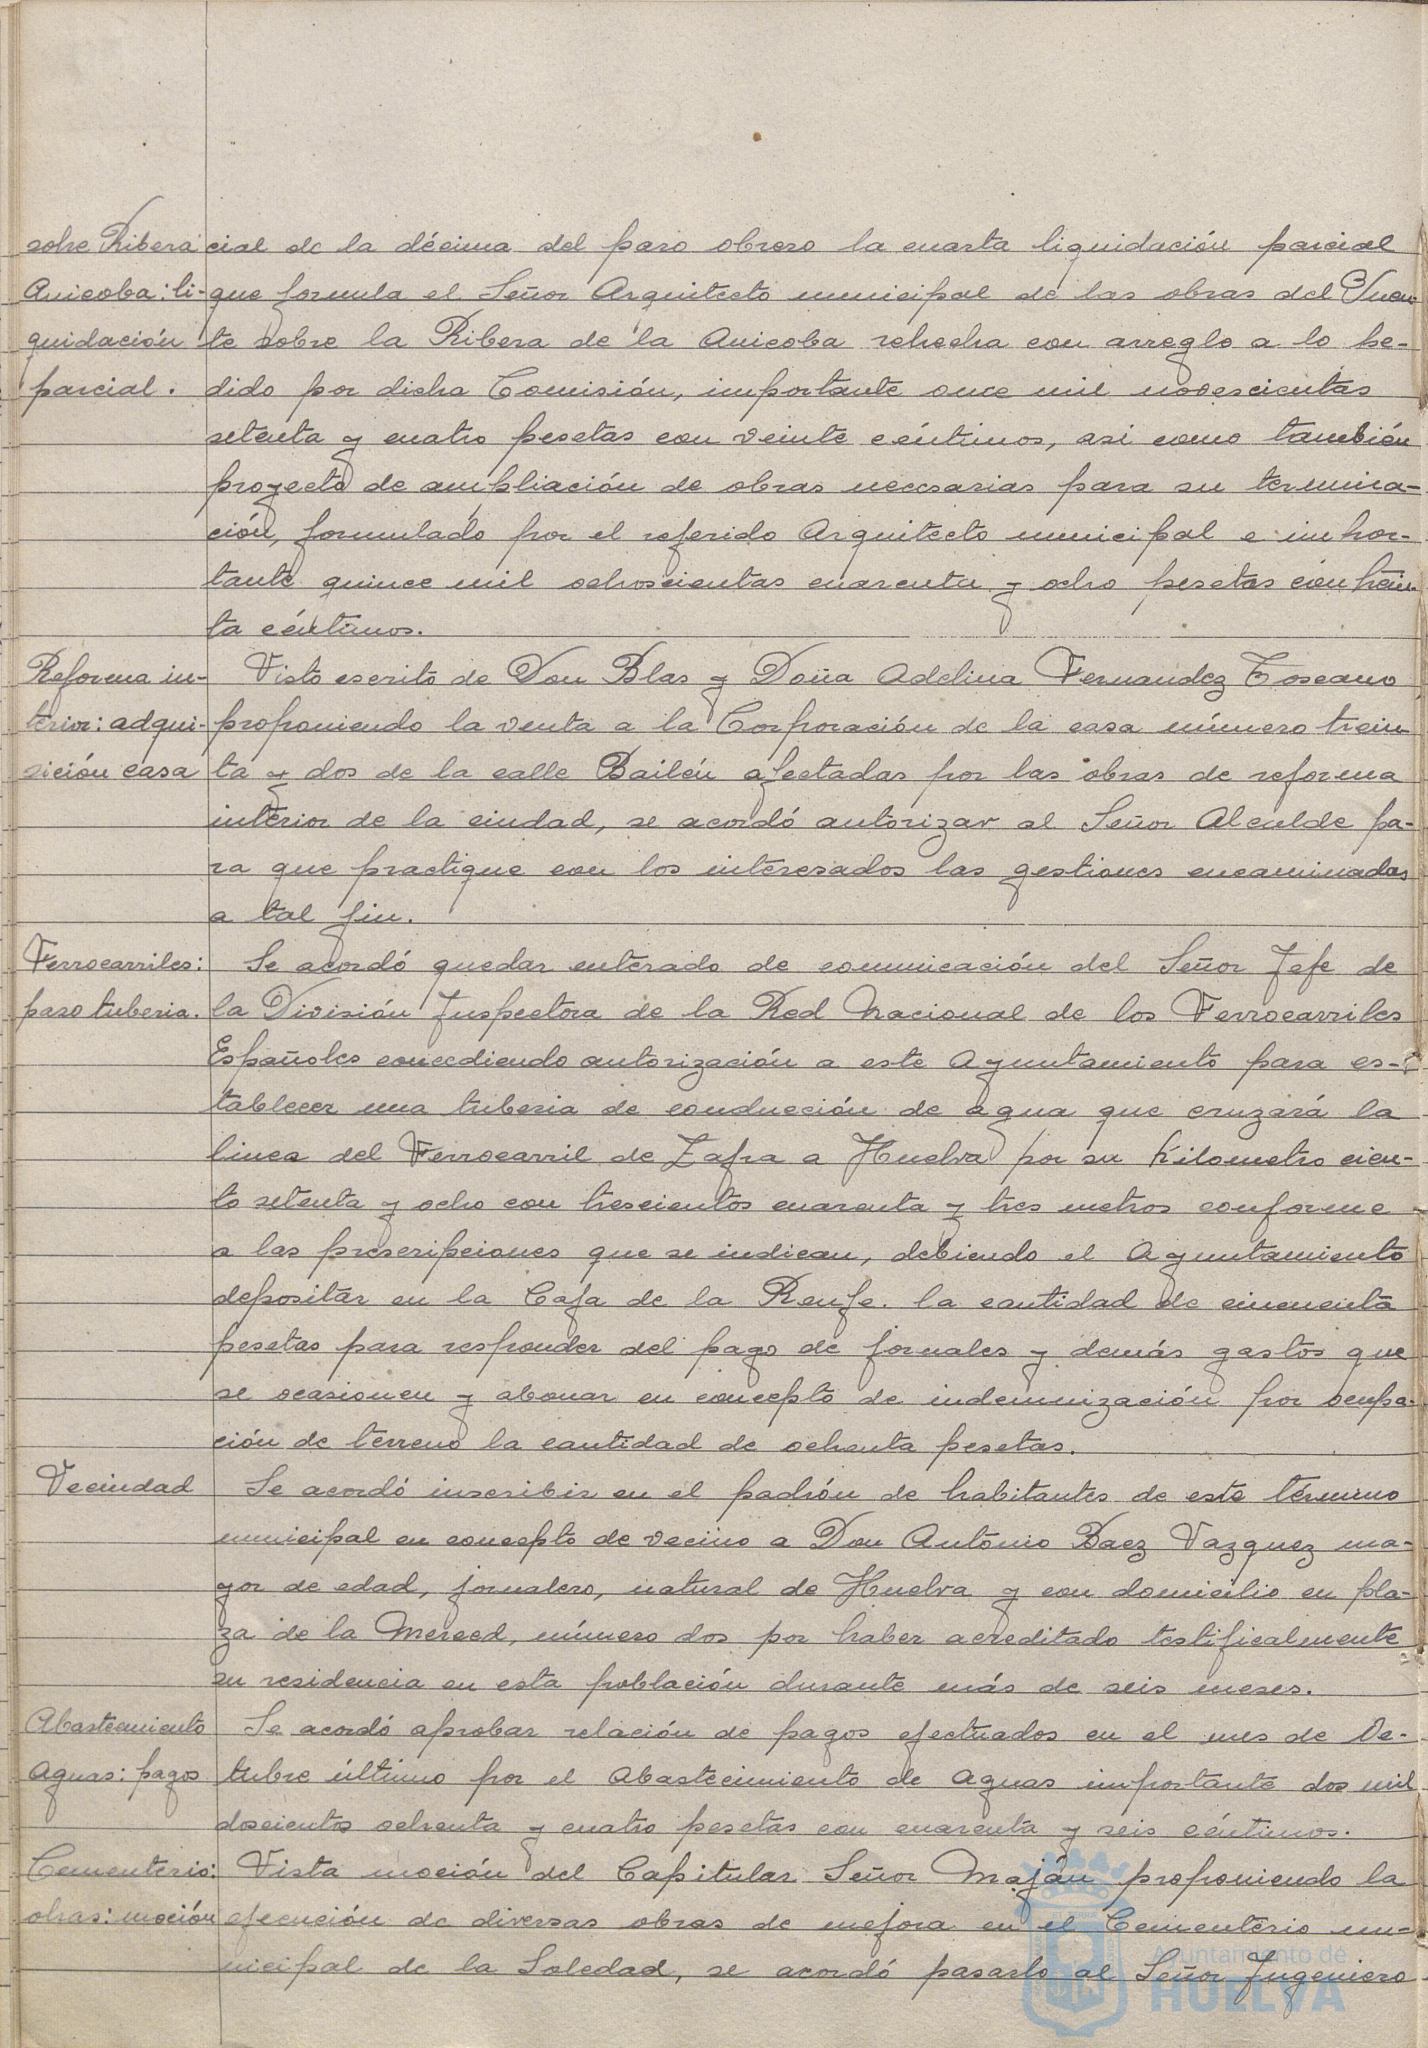 sobre Ribera
Anicoba: li-
quidación
parcial.
cial de la décima del paro obrero la cuarta liquidación parcial
que formula el Señor Arquitecto municipal de las obras del Puen-
te sobre la Ribera de la Anicoba rehecha con arreglo a lo pe-
dido por dicha Comisión, importante once mil novescientas
setenta y cuatro pesetas con veinte céntimos, asi como también
proyecto de ampliación de obras necesarias para su termina-
ción, formulado por el referido Arquitecto municipal e impor-
tante quince mil ochoscientas cuarenta y ocho pesetas con trein-
ta céntimos.
Reforma in-
terior: adqui-
sición casa
Visto escrito de Don Blas y Doña Adelina Fernandez Toscano
proponiendo la venta a la Corporación de la casa número trein
ta y dos de la calle Bailén afectadas por las obras de reforma
interior de la ciudad, se acordó autorizar al Señor Alcalde pa-
ra que practique con los interesados las gestiones encaminadas
a tal fin.
Ferrocarriles:
paso tuberia.
Se acordó quedar enterado de comunicación del Señor Jefe de
la División Inspectora de la Red Nacional de los Ferrocarriles
Españoles concediendo autorización a este Ayuntamiento para es-
tablecer una tuberia de conducción de agua que cruzará la
linea del Ferrocarril de Zafra a Huelva por su Kilometro cien-
to setenta y ocho con trescientos cuarenta y tres metros conforme
a las prescripciones que se indican, debiendo el Ayuntamiento
depositar en la Caja de la Renfe. la cantidad de cincuenta
pesetas para responder del pago de jornales y demás gastos que
se ocasionen y abonar en concepto de indemnización por ocupa-
ción de terreno la cantidad de ochenta pesetas.
Vecindad
Se acordó inscribir en el padrón de habitantes de este término
municipal en concepto de vecino a Don Antonio Baez Vazquez ma-
yor de edad, jornalero, natural de Huelva y con domicilio en pla-
za de la Merced, número dos por haber acreditado testificalmente
su residencia en esta población durante más de seis meses.
Abastecimiento
Aguas: pagos
Se acordó aprobar relación de pagos efectuados en el mes de Oc-
tubre último por el Abastecimiento de Aguas importante dos mil
doscientos ochenta y cuatro pesetas con cuarenta y seis céntimos.
Cementerio:
obras: moción
Vista moción del Capitular Señor Maján proponiendo la
ejecución de diversas obras de mejora en el Cementerio mu-
nicipal de la Soledad, se acordó pasarlo al Señor Ingeniero
Ayuntamiento de
HUELVA